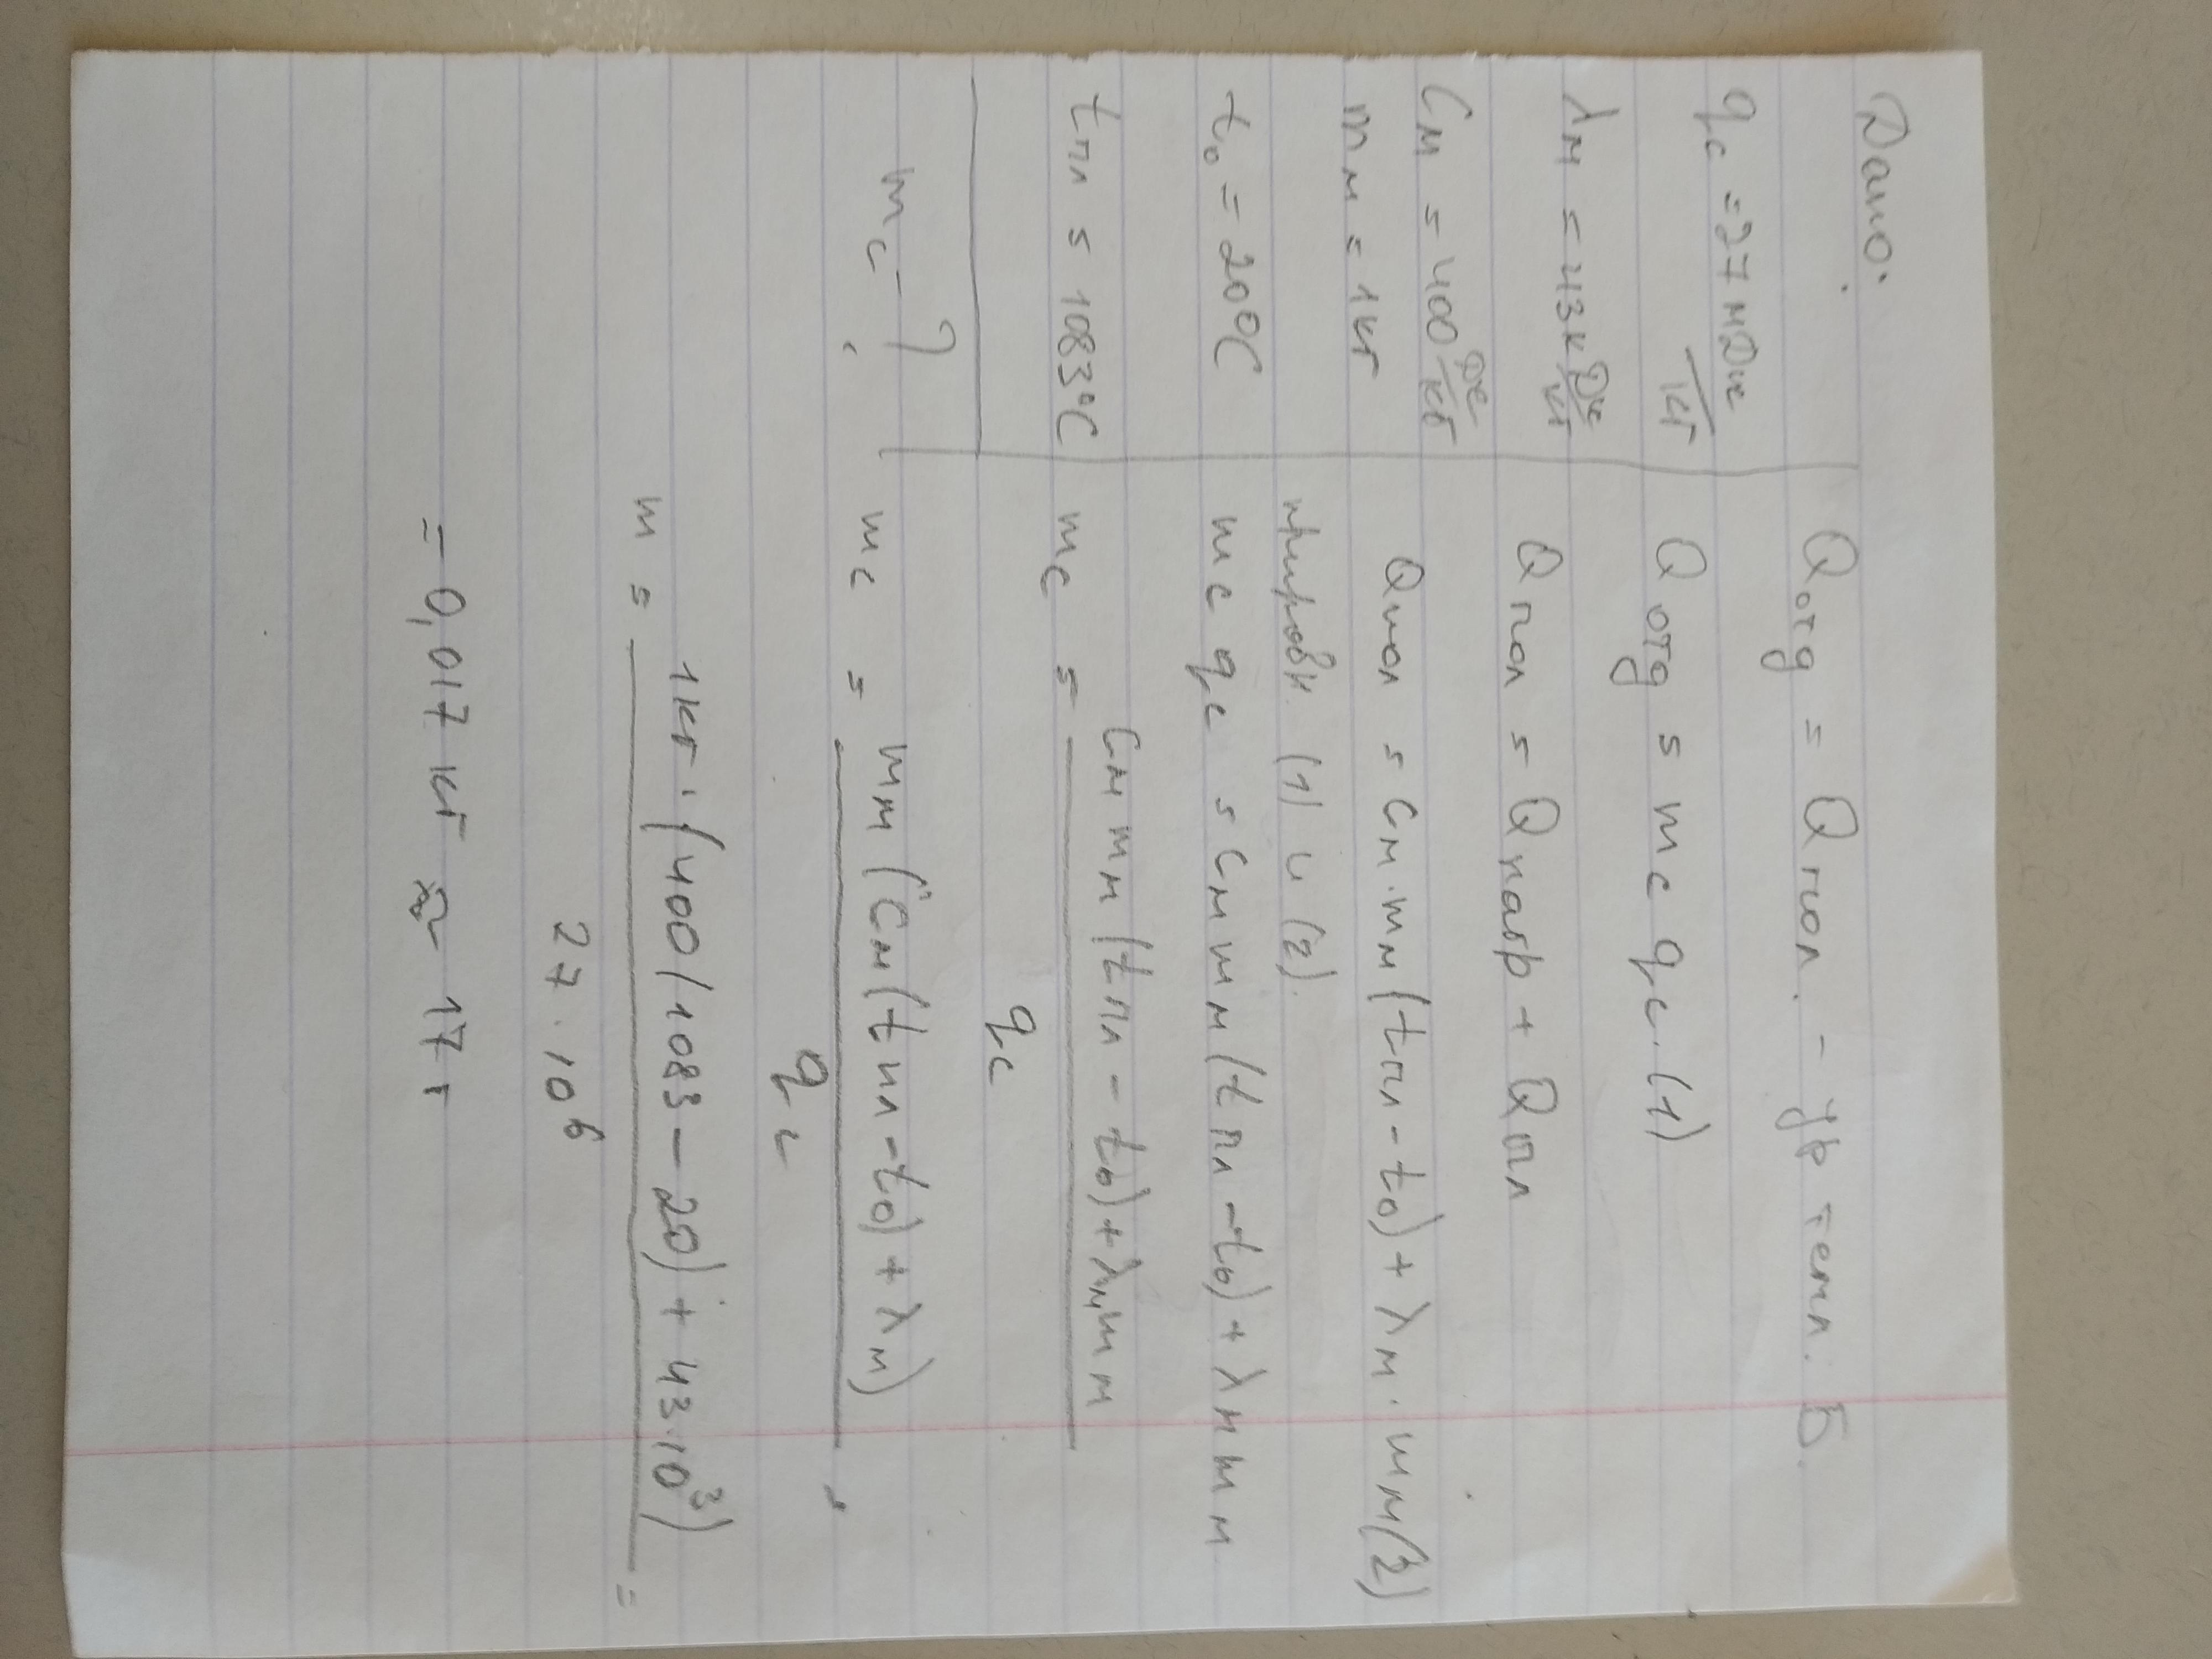 Дано:
qс = 27 МДж/кг
λм = 43 кДж/кг
Cм = 400 Дж/кг
mм = 1 кг
t₀ = 20°C
tпл = 1083°C
mс - ?
Qотд = Qпол. - ур. темп. Б.
Qотд = mс qс. (1)
Qпол = Qнагр + Qпл
Qпол = Cм · mм (tпл - t₀) + λм · mм (2)
(1) и (2).
mс qс = Cм mм (tпл - t₀) + λм mм
mс = Cм mм (tпл - t₀) + λм mм / qс
mс = mм (Cм (tпл - t₀) + λм) / qс ,
m = 1 кг · (400 (1083 - 20) + 43 · 10³) / 27 · 10⁶ =
= 0,017 кг ≈ 17 г